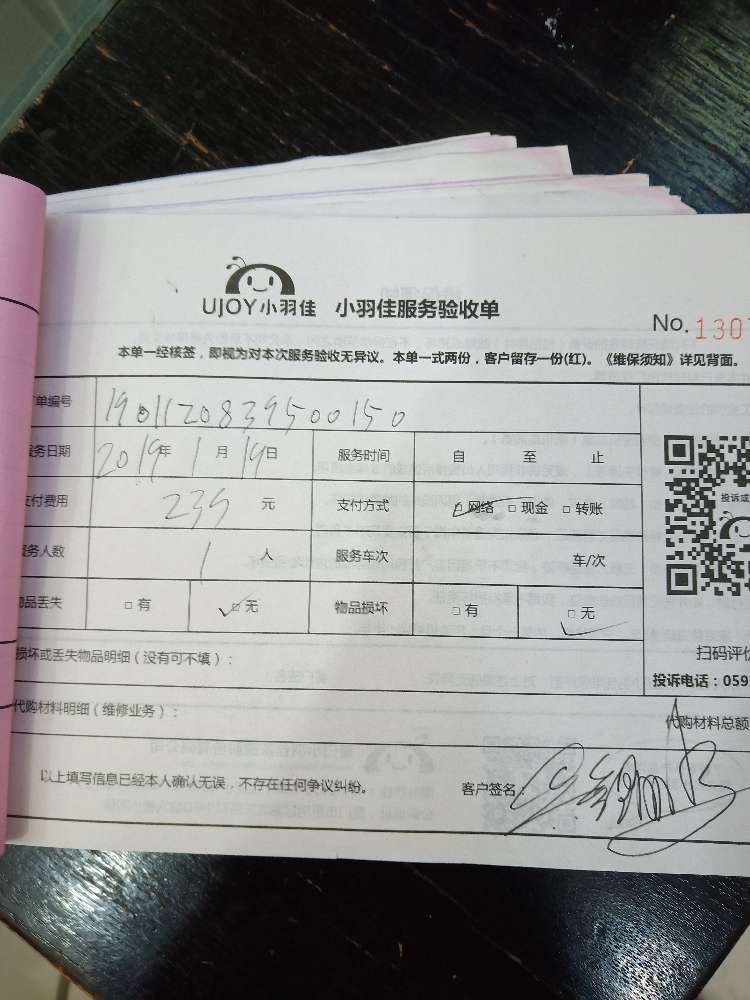 UJOY小羽佳 小羽佳服务验收单
No. 130
本单一经核签，即视为对本次服务验收无异议。本单一式两份，客户留存一份(红)。《维保须知》详见背面。
单编号 1901120839500150
务日期 2019年 1月 19日 服务时间 自 至 止
支付费用 235 元 支付方式 □网络 □现金 □转账
务人数 1 人 服务车次 车/次
物品丢失 □有 □无 物品损坏 □有 □无
投诉或
扫码评价
损坏或丢失物品明细（没有可不填）：
投诉电话：059
代购材料明细（维修业务）：
代购材料总额
以上填写信息已经本人确认无误，不存在任何争议纠纷。 客户签名：